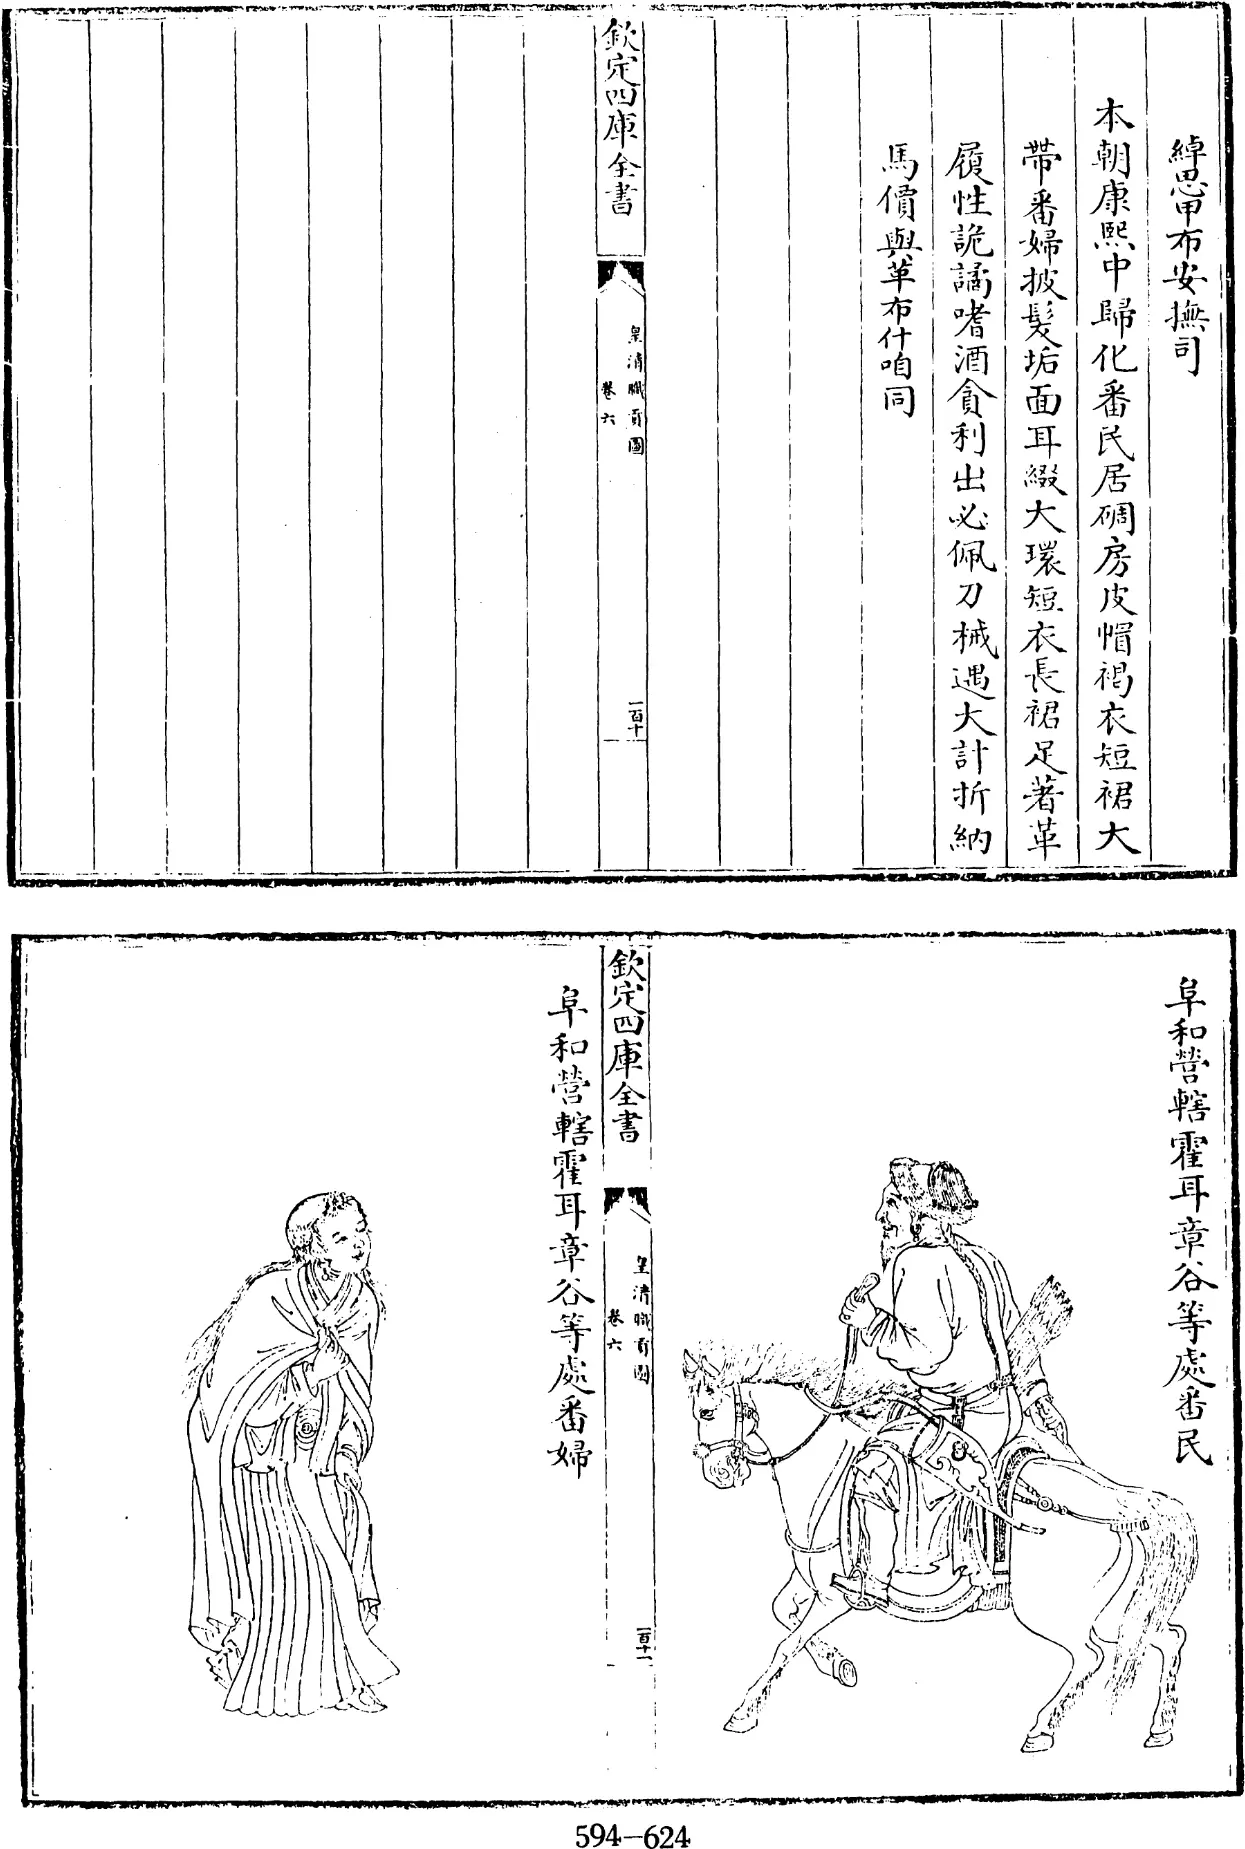 綽思甲布安撫司
本朝康熙中歸化番民居碉房皮帽褐衣短裙大
帶番婦披髮垢面耳綴大環短衣長裙足著革
履性詭譎嗜酒貪利出必佩刀械遇大計折納
馬價與革布什咱同
欽定四庫全書
皇清職貢圖
卷六
一百十
阜和營轄霍耳章谷等處番民
欽定四庫全書
皇清職貢圖
卷六
一百十一
阜和營轄霍耳章谷等處番婦
594-624